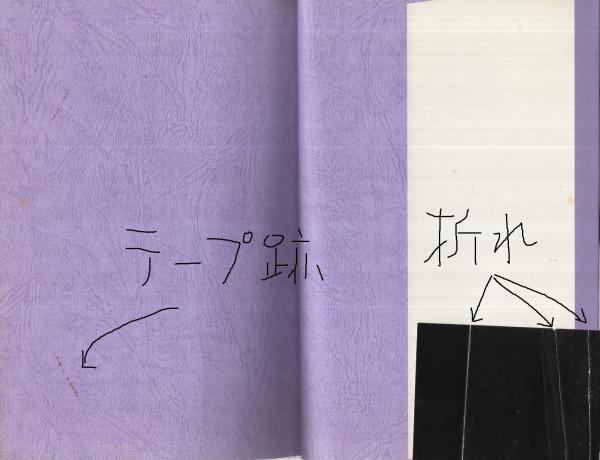 テープ跡
折れ